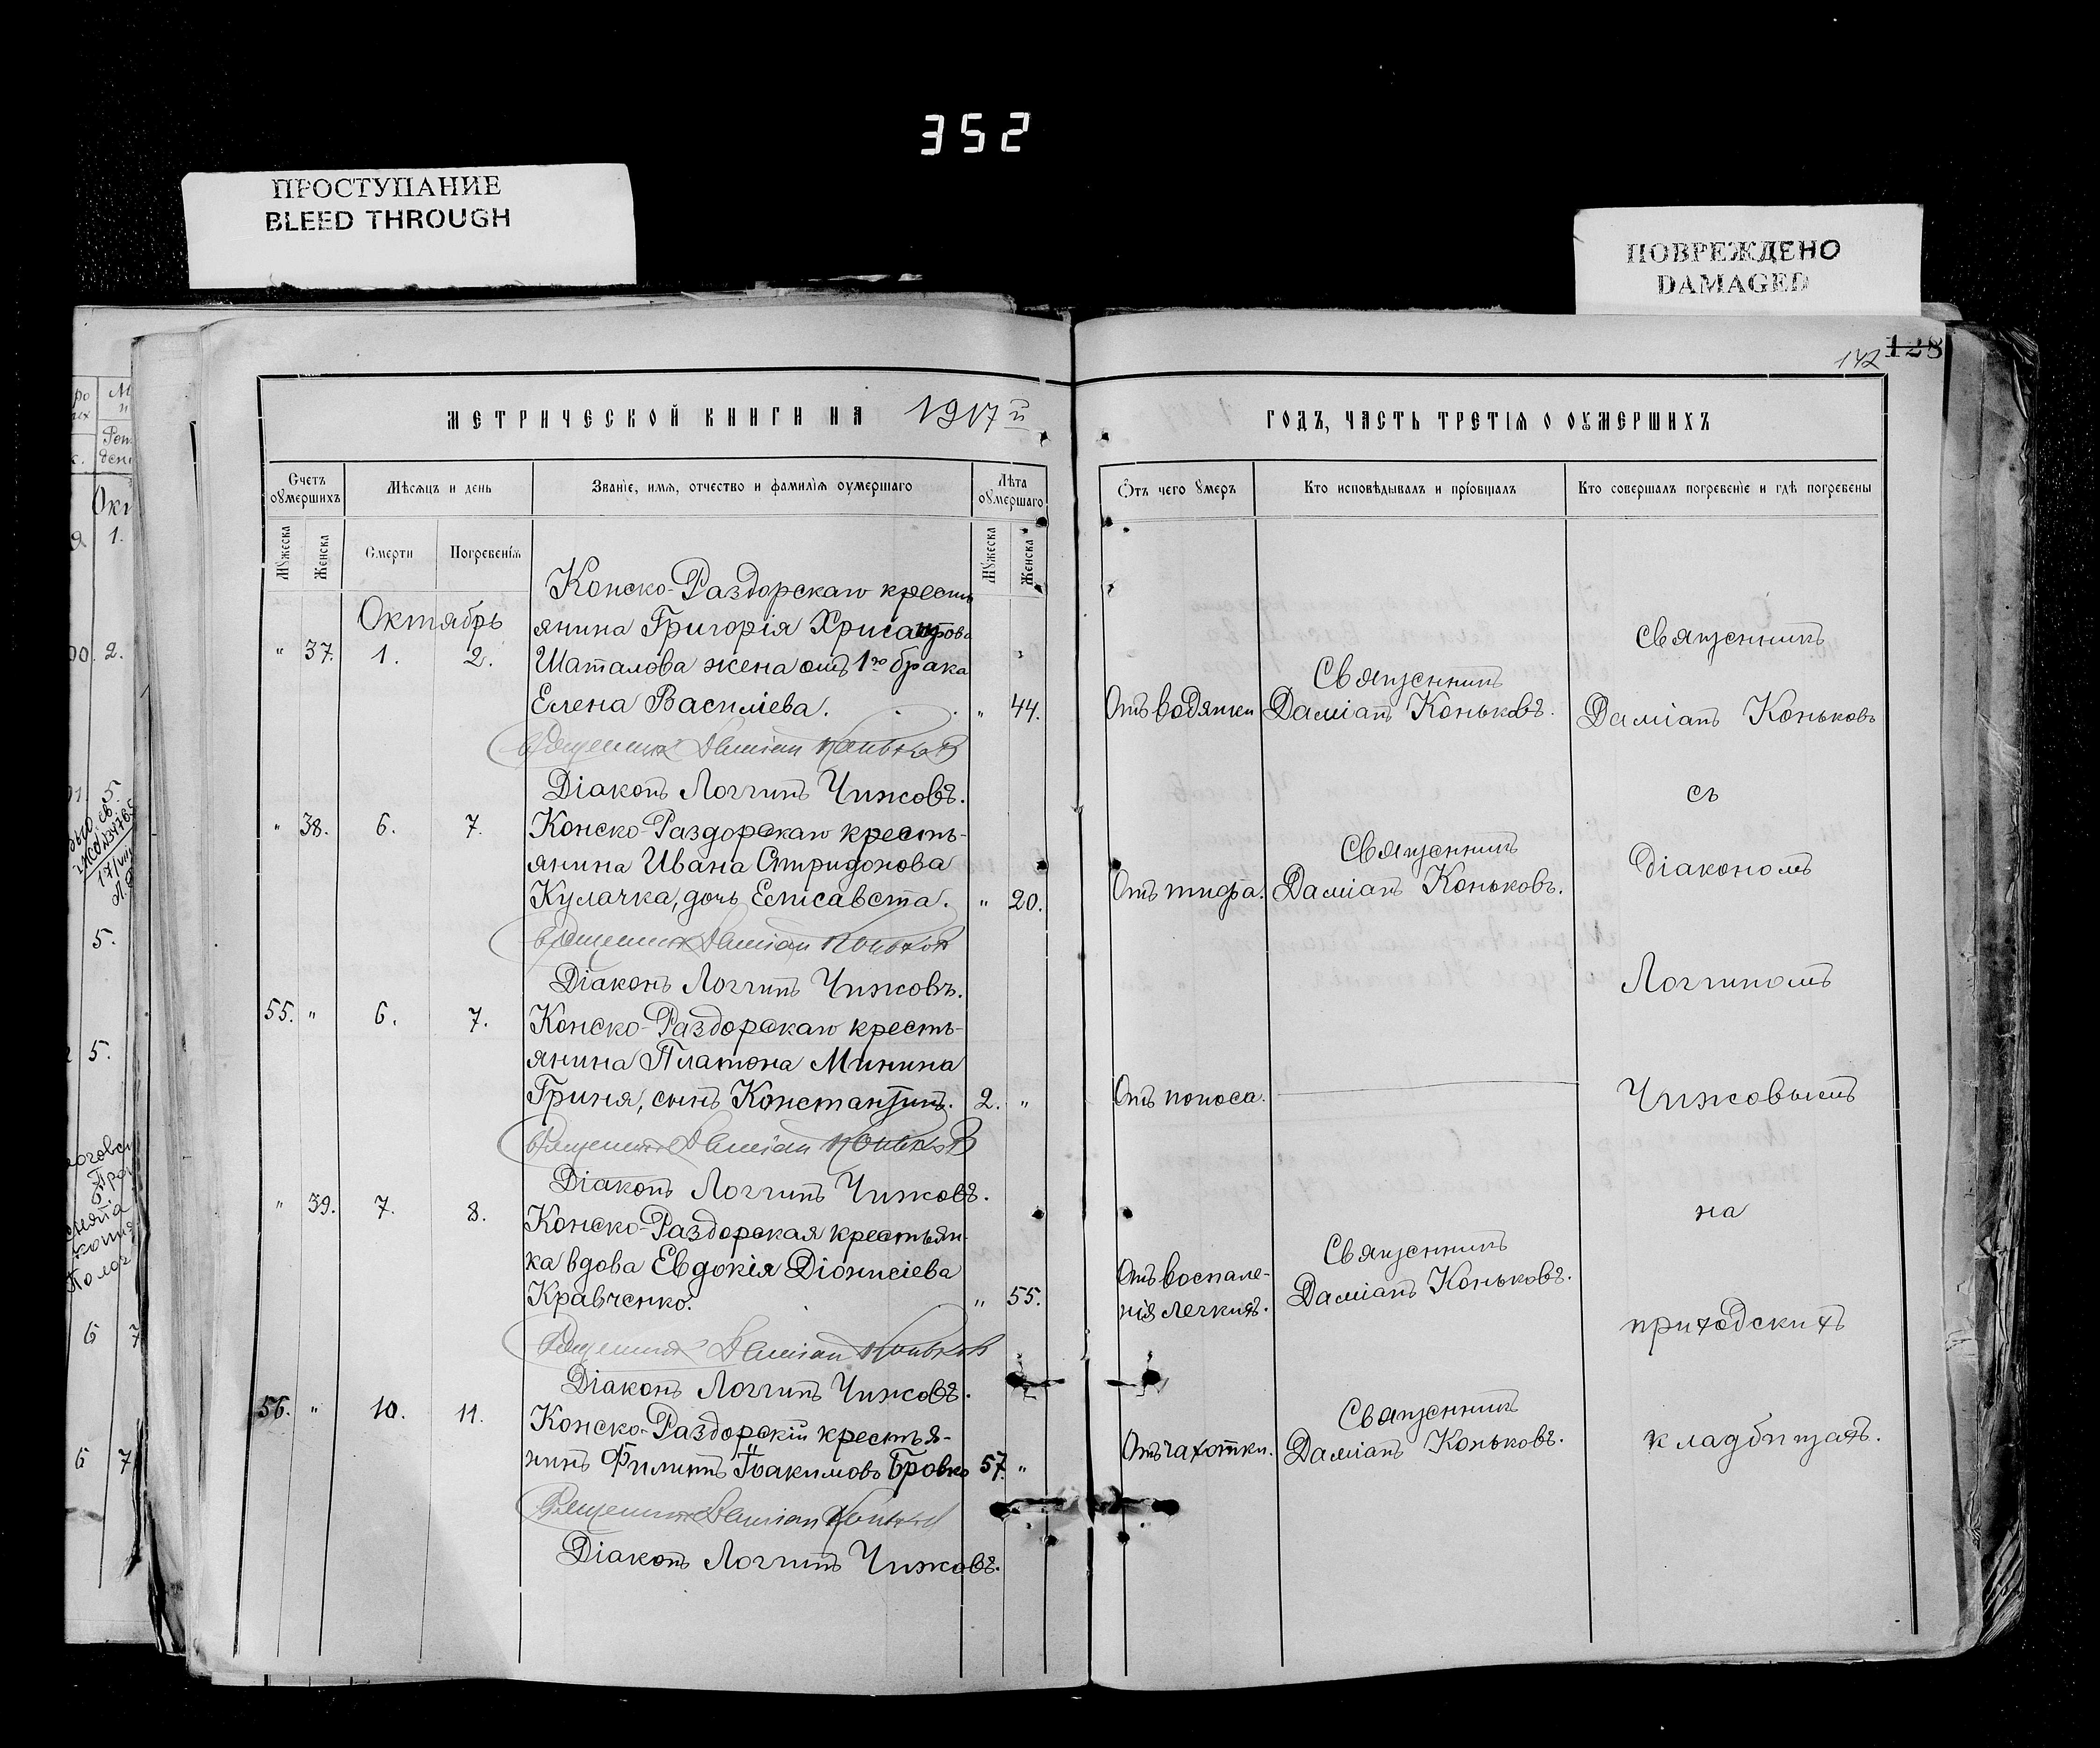 352
ПРОСТУПАНИЕ
BLEED THROUGH
ПОВРЕЖДЕНО
DAMAGED
142 128
МЕТРИЧЕСКОЙ КНИГИ НА 1917 й
Счетъ оумершихъ
Мѣсяцъ и день
Званіе, имя, отчество и фамилія оумершаго
Лѣта оумершаго
Мужеска
Женска
Смерти
Погребенія
Мужеска
Женска
Октябрь
" 37. 1. 2.
Конско-Раздорскаго кресть
янина Григорія Хрисанфова
Шаталова жена отъ 1го брака
Елена Василіева. " 44.
Священникъ Даміанъ Коньковъ
Діаконъ Логгинъ Чижовъ.
" 38. 6. 7. Конско-Раздорскаго кресть-
янина Ивана Спиридонова
Кулачка, дочь Елисавета. " 20.
Священникъ Даміанъ Коньковъ
Діаконъ Логгинъ Чижовъ.
55. " 6. 7. Конско-Раздорскаго кресть-
янина Платона Минина
Гриня, сынъ Константинъ. 2. "
Священникъ Даміанъ Коньковъ
Діаконъ Логгинъ Чижовъ.
" 39. 7. 8. Конско-Раздорская крестьян-
ка вдова Евдокія Діонисіева
Кравченко. " 55.
Священникъ Даміанъ Коньковъ
Діаконъ Логгинъ Чижовъ.
56. " 10. 11. Конско-Раздорскій крестья-
нинъ Филиппъ Іоакимовъ Бровко 57. "
Священникъ Даміанъ Коньковъ
Діаконъ Логгинъ Чижовъ.
ГОДЪ, ЧАСТЬ ТРЕТІЯ О ОУМЕРШИХЪ
Отъ чего умеръ
Кто исповѣдывалъ и пріобщалъ
Кто совершалъ погребеніе и гдѣ погребены
Отъ водянки
Священникъ
Даміанъ Коньковъ.
Отъ тифа.
Священникъ
Даміанъ Коньковъ.
Отъ поноса.
Отъ воспале-
нія легкихъ.
Священникъ
Даміанъ Коньковъ.
Отъ чахотки.
Священникъ
Даміанъ Коньковъ.
Священникъ
Даміанъ Коньковъ
съ
діакономъ
Логгиномъ
Чижовымъ
на
приходскихъ
кладбищахъ.